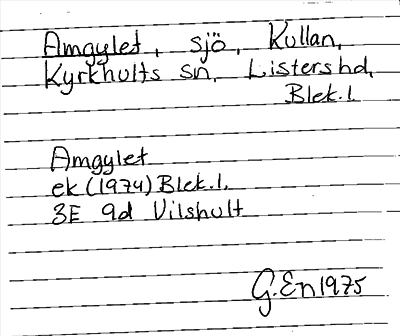 Amgylet, sjö, Kullan,
Kyrkhults sn, Listers hd,
Blek.l.
Amgylet
ek (1974) Blek.l.
3E 9d Vilshult
G.En 1975